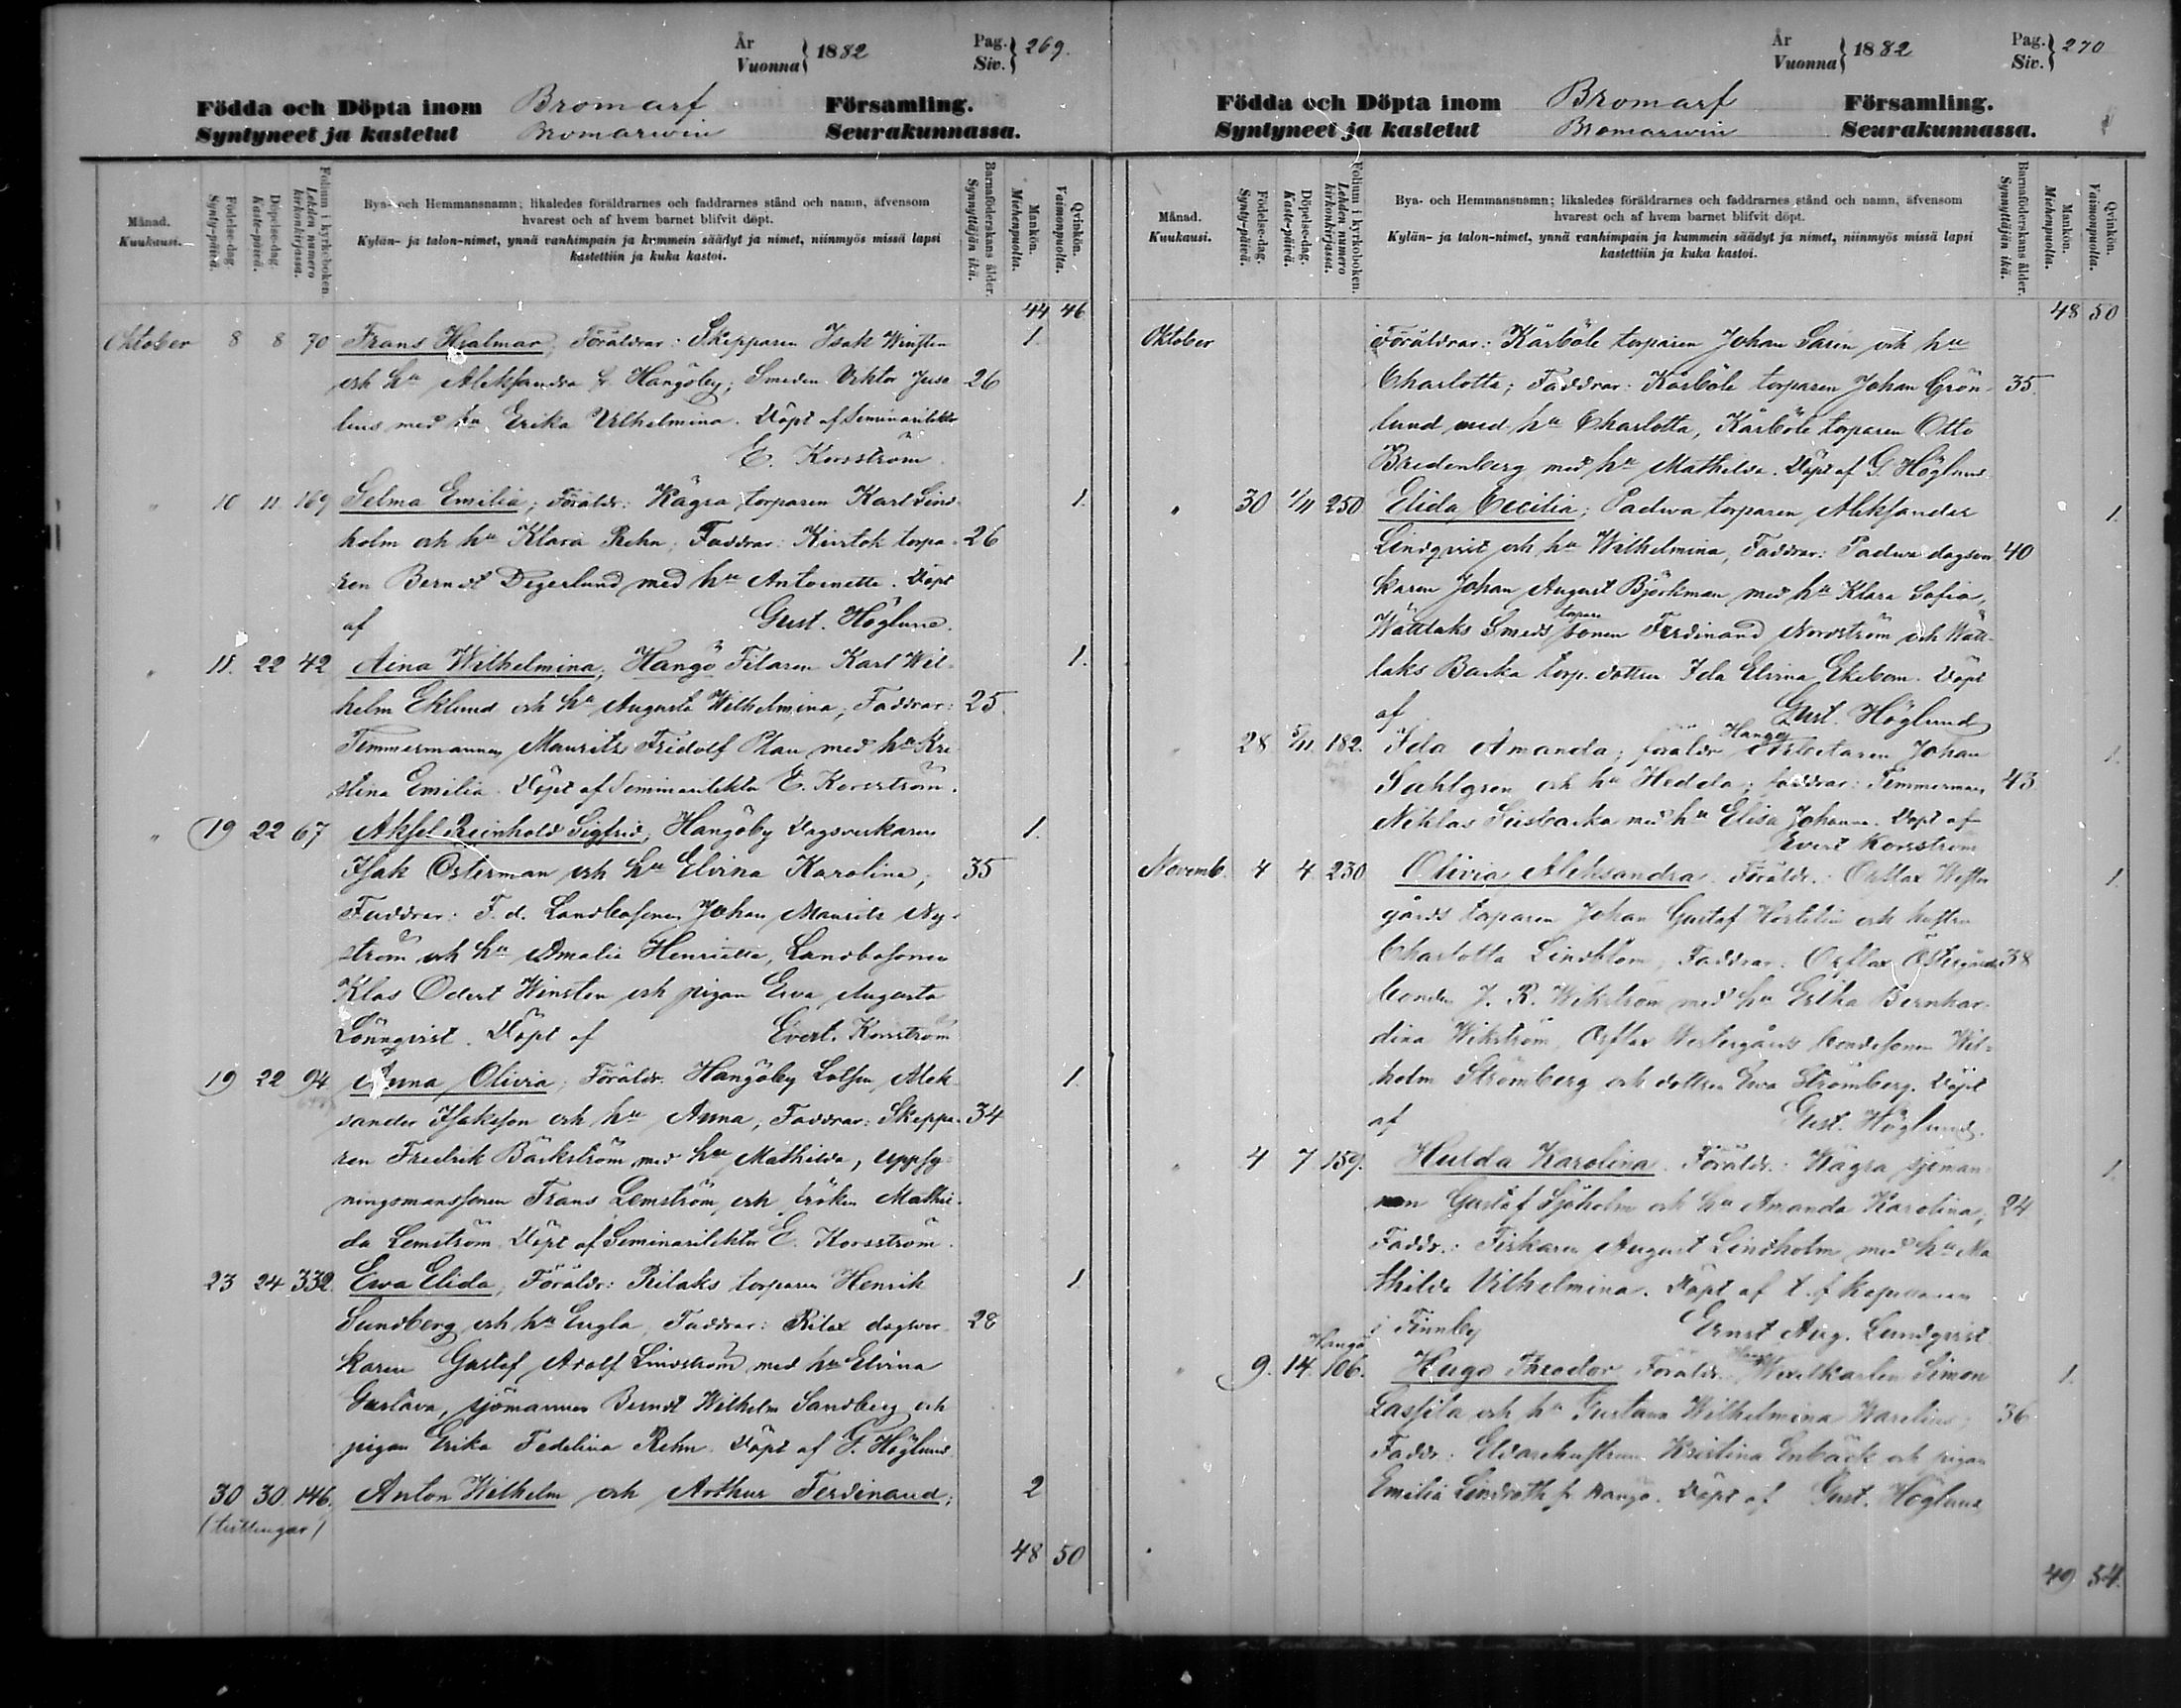 År
Vuonna } 1882
Pag.
Siv. } 269.
Födda och Döpta inom Bromarf Församling.
Syntyneet ja kastetut Bromarwin Seurakunnassa.
Månad.
Kuukausi.
Födelse-dag.
Synty-päivä.
Döpelse-dag.
Kaste-päivä.
Folium i kyrkoboken.
Lehden numero kirkonkirjassa.
Bya- och Hemmansnamn; likaledes föräldrarnes och faddrarnes stånd och namn, äfvensom
hvarest och af hvem barnet blifvit döpt.
Kylän- ja talon-nimet, ynnä vanhimpain ja kummein säädyt ja nimet, niinmyös missä lapsi
kastettiin ja kuka kastoi.
Barnaföderskans ålder.
Synnyttäjän ikä.
Mankön.
Miehenpuolta.
Qvinkön.
Vaimonpuolta.
44 46
Oktober 8 8 70 Frans Hjalmar; Föräldrar: Skepparen Isak Winsten 1.
och hu Aleksandra fr Hangöby; Smeden Viktor Juse- 26
lius med hu Erika Vilhelmina. Döpt af Seminarilektor
E. Korsström
" 10 11. 169 Selma Emilia; Föräldr: Wägra torparen Karl Lind- 1.
holm och hu Klara Rehn; Faddrar: Kivitok torpa- 26
ren Berndt Degerlund med hu Antoinette. Döpt
af Gust. Höglund.
" 18. 22 42 Aina Wilhelmina; Hangö Filaren Karl Wil- 1.
helm Eklund och hu Augusta Wilhelmina; Faddrar: 25.
Temmermannen Maurits Fridolf Plan med hu Kri-
stina Emilia. Döpt af Seminarilektor E. Korsström.
" 19 22 67 Aksel Reinhold Sigfrid; Hangöby Dagsverkaren 1.
Isak Osterman och hu Elvina Karolina; 35
Faddrar: F. d. Landbosonen Johan Maurits Ny-
ström och hu Amalia Henrietta, Landbosonen
Klas Odert Winsten och pigan Ewa Augusta
Lönnqvist. Döpt af Evert. Korsström
19 22 94 Anna Olivia; Föräldr. Hangöby Lotsen Alek- 1.
sander Isaksson och hu Anna; Faddrar: Skeppa- 34
ren Fredrik Bäckström med hu Mathilda, uppsy-
ningsmanssonen Frans Lemström och fröken Mathil-
da Lemström. Döpt af Seminarilektor E. Korsström.
23 24 332. Ewa Elida; Föräldr: Rilaks torparen Henrik 1.
Sundberg och hu Engla, Faddrar: Rilax dagsver- 28
karen Gustaf Adolf Lindström med hu Elvina
Gustava, sjömannen Berndt Wilhelm Sandberg och
pigan Erika Fedelina Rehn. Döpt af G. Höglund
30 30. 146. Anton Wilhelm och Arthur Ferdinand; 2
(tvillingar)
48 50
År
Vuonna } 1882
Pag.
Siv. } 270
Födda och Döpta inom Bromarf Församling.
Syntyneet ja kastetut Bromarwin Seurakunnassa.
Månad.
Kuukausi.
Födelse-dag.
Synty-päivä.
Döpelse-dag.
Kaste-päivä.
Folium i kyrkoboken.
Lehden numero kirkonkirjassa.
Bya- och Hemmansnamn; likaledes föräldrarnes och faddrarnes stånd och namn, äfvensom
hvarest och af hvem barnet blifvit döpt.
Kylän- ja talon-nimet, ynnä vanhimpain ja kummein säädyt ja nimet, niinmyös missä lapsi
kastettiin ja kuka kastoi.
Barnaföderskans ålder.
Synnyttäjän ikä.
Mankön.
Miehenpuolta.
Qvinkön.
Vaimonpuolta.
48 50
Oktober Föräldrar: Kårböle torparen Johan Sarin och hu
Charlotta; Faddrar: Kårböle torparen Johan Grön- 35.
lund med hu Charlotta, Kårböle torparen Otto
Bredenberg med hu Mathilda. Döpt af G. Höglund
" 30 1/11 250 Elida Cecilia; Padva torparen Aleksander 1.
Lindqvist och hu Wilhelmina, Faddrar: Padva dagsver- 40
karen Johan August Björkman med hu Klara Sofia,
Wättlaks Smeds torpare sonen Ferdinand Nordström och Wätt-
laks Backa torp. dottren Ida Elvina Ekebom. Döpt
af Gust. Höglund
" 28 5/11 182. Ida Amanda; föräldr Hangö Arbetaren Johan 1.
Sahlgren och hu Hedda; faddrar: Temmerman 43
Niklas Seisbacka med hu Elisa Johanna. Döpt af
Evert Korsström
Novemb. 4 4 230 Olivia Aleksandra. Föräldr.: Orslax Wester- 1.
gårds torparen Johan Gustaf Hortelin och hustru
Charlotta Lindblom, Faddrar. Orslax Östergårds 38
bonden J. R. Wikström med hu Erika Bernhar-
dina Wikström, Orslax Westergårds bondesonen Wil-
helm Strömberg och dottren Ewa Strömberg. Döpt
af Gust. Höglund.
" 4 7 159. Hulda Karolina. Föräldr.: Wägra sjöman- 1.
nen Gustaf Sjöholm och hu Amanda Karolina; 24
Faddr.: Fiskaren August Lindholm med hu Ma-
thilda Vilhelmina. Döpt af t. f. kapellanen
i Finnby Ernst Aug. Lundqvist
" 9. 14. Hangö 106. Hugo Theodor. Föräldr. Hangö Wexelkarlen Simon 1.
Lassila och hu Gustava Wilhelmina Warelius; 36
Faddr: Eldarehustrun Kristina Enbäck och pigan
Emilia Lindroth fr Hangö. Döpt af Gust. Höglund
49 54.